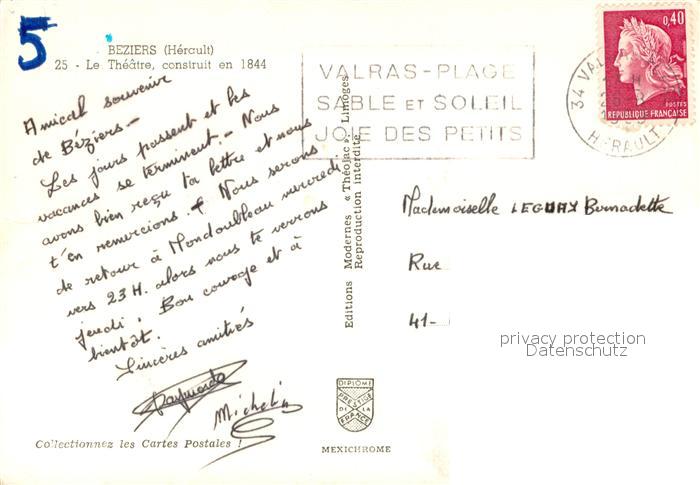 5
BEZIERS (Hérault)
25 - Le Théâtre, construit en 1844
Amical souvenir
de Béziers -
Les jours passent et les
vacances se terminent. - Nous
avons bien reçu ta lettre et nous
t'en remercions. + Nous serons
de retour à Mondoubleau mercredi
vers 23 H. alors nous te verrons
jeudi. Bon courage et à
bientôt.
Sincères amitiés
Raymonde
Michelin
Collectionnez les Cartes Postales !
Editions Modernes « Théojac » Limoges
Reproduction interdite
DIPLOME
PRESTIGE
DE LA
FRANCE
MEXICHROME
VALRAS-PLAGE
SABLE ET SOLEIL
JOIE DES PETITS
34 VAL
HERAULT
0,40
POSTES
REPUBLIQUE FRANÇAISE
Mademoiselle LEGUAY Bernadette
Rue
41-
privacy protection
Datenschutz